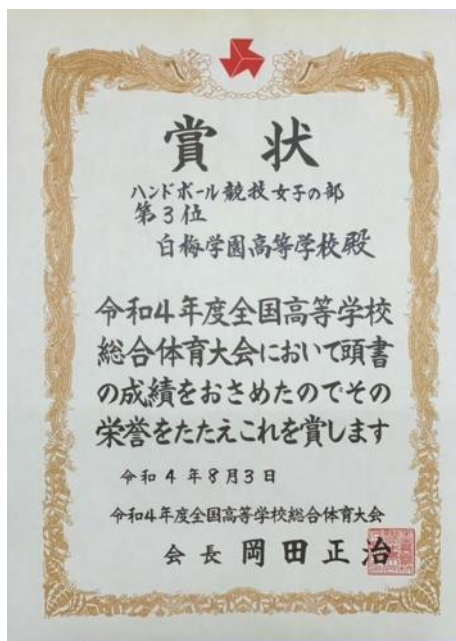 賞状
ハンドボール競技女子の部
第3位
白梅学園高等学校殿
令和4年度全国高等学校
総合体育大会において頭書
の成績をおさめたのでその
栄誉をたたえこれを賞します
令和4年8月3日
令和4年度全国高等学校総合体育大会
会長 岡田正治